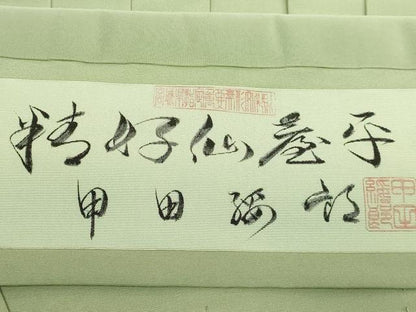 精好仙臺平
甲田綏郎